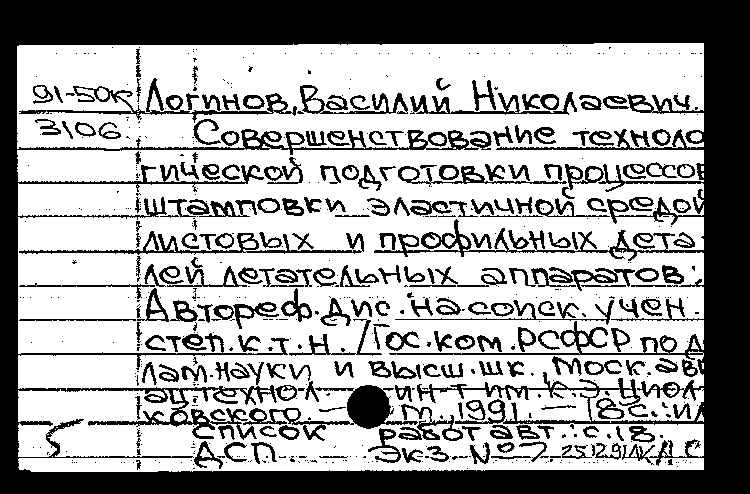 91-50к Логинов, Василий Николаевич.
3106 Совершенствование техноло
гической подготовки процессов
штамповки эластичной средой
листовых и профильных дета
лей летательных аппаратов:
Автореф. дис. на соиск. учен.
степ. к.т.н. / Гос. ком. РСФСР по де
лам науки и высш. шк., Моск. ави
ац. технол. ин-т им. К.Э. Циол-
ковского. — М., 1991. — 18с.: ил
5 Список работ авт.: с.18.
ДСП. Экз. №7. 25.12.91